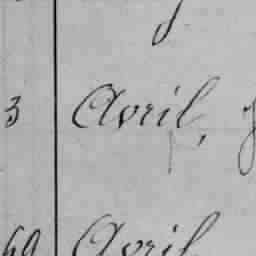 3 Avril,
69 Avril